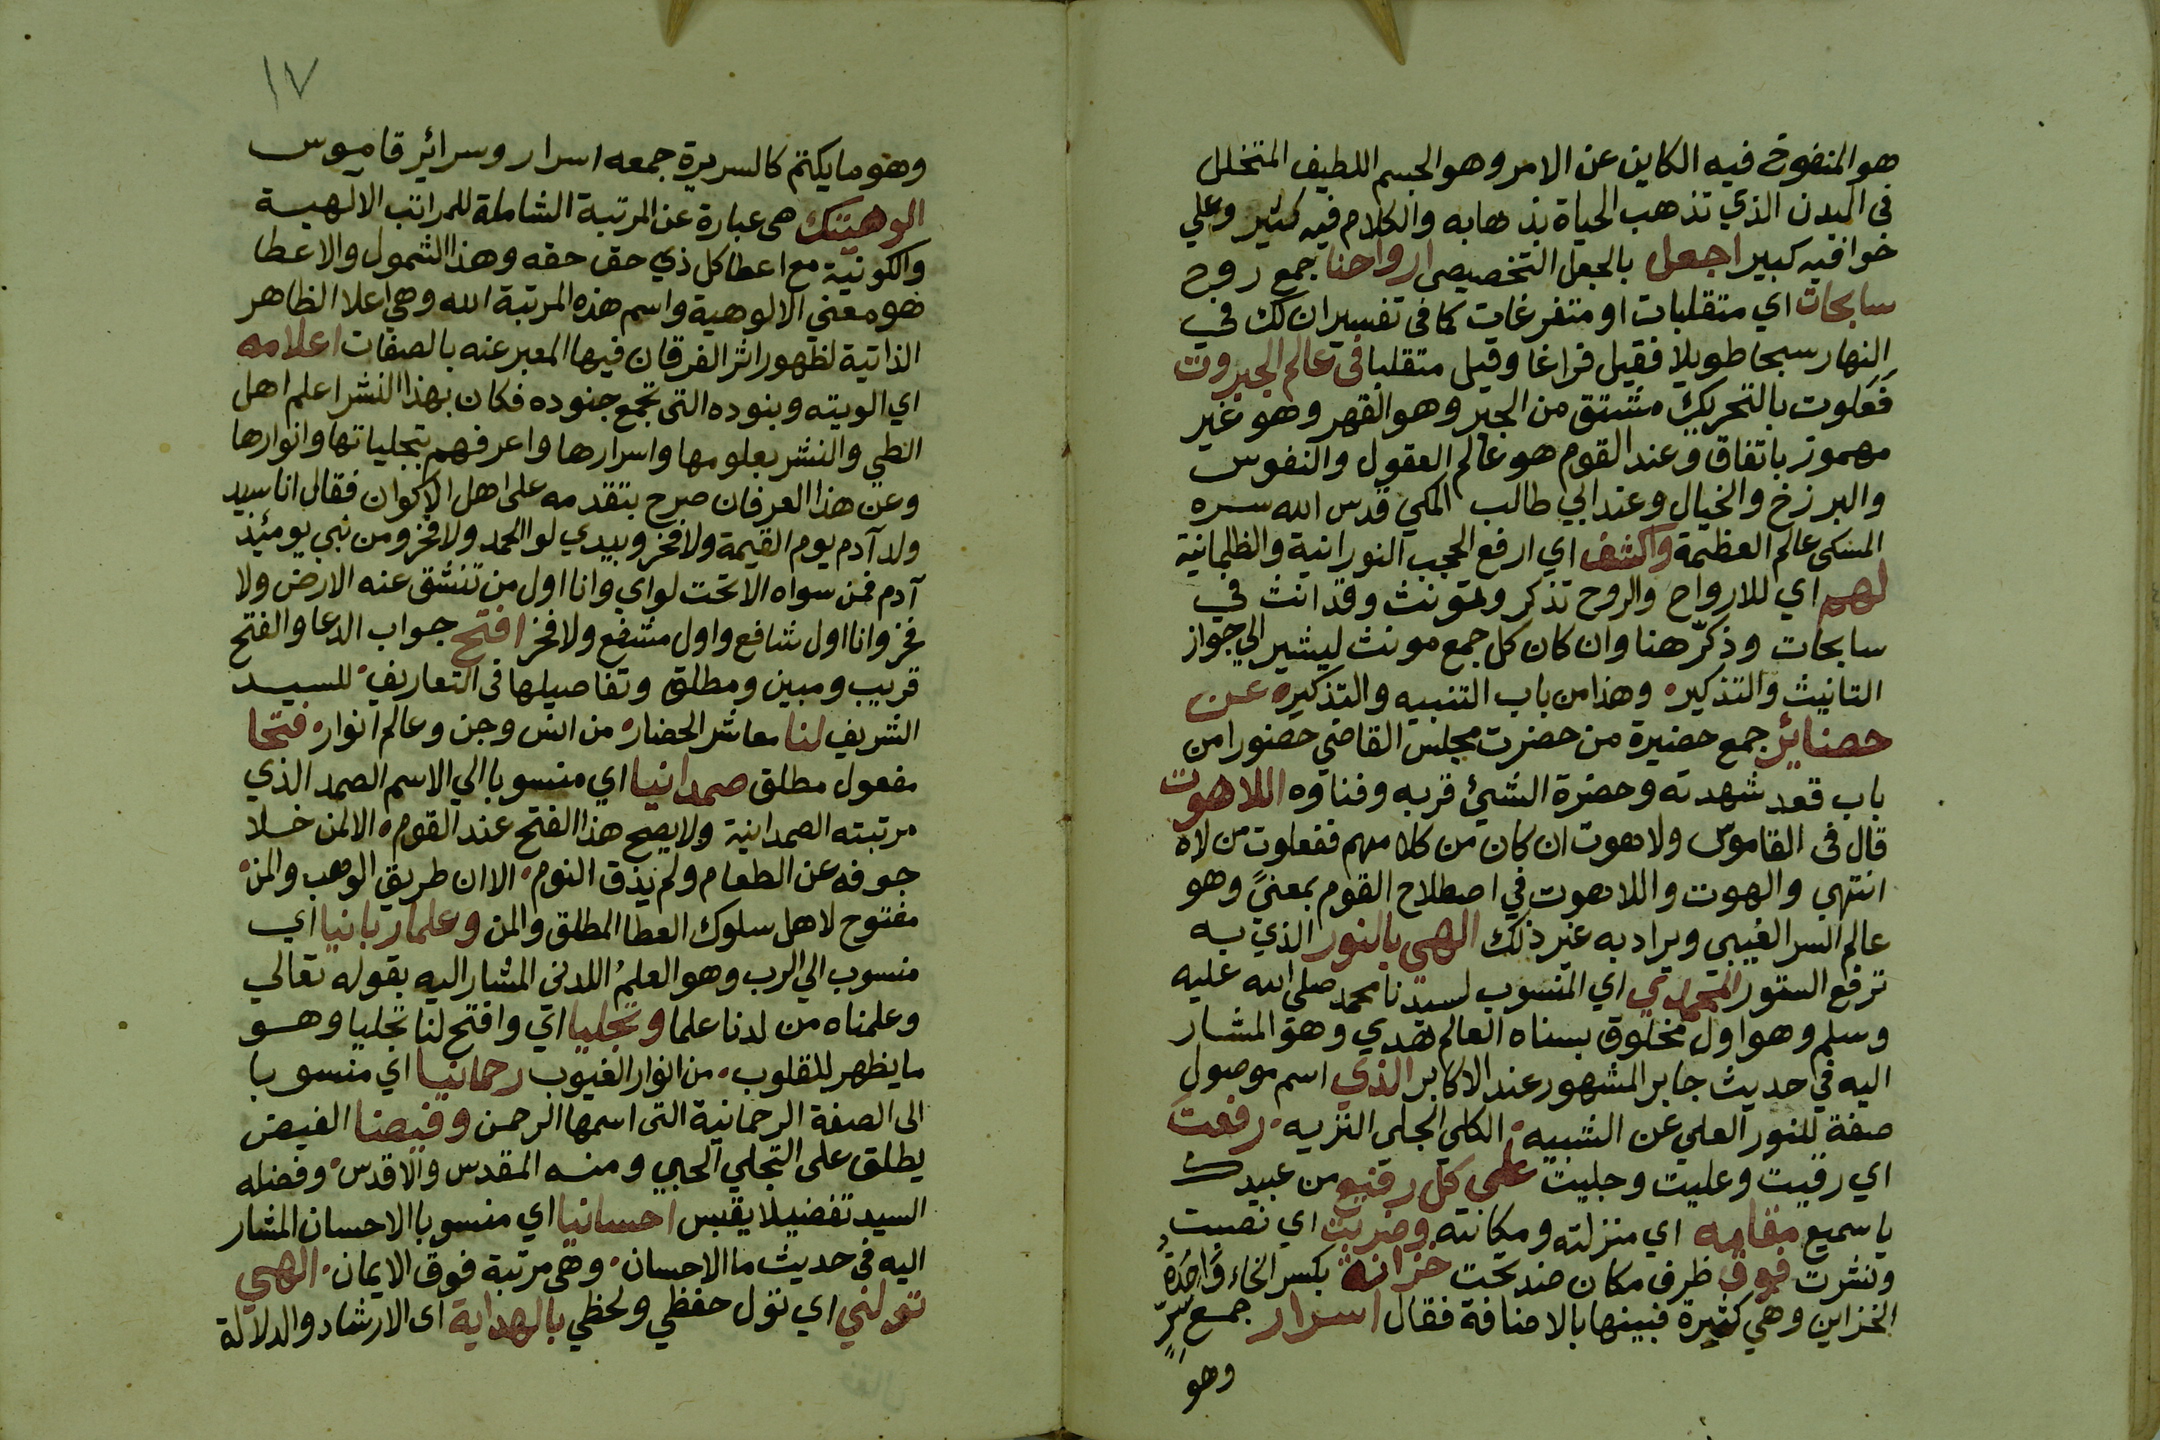 هو المنفوخ فيه الكاين عن الامر وهو الجسم اللطيف المتخلل
فى البدن الذي تذهب الحياة بذهابه والكلام فيه كثير وعلي
خوافيه كبير اجعل بالجعل التخصيصى ارواحنا جمع روح
سابحات اي متقلبات او متفرغات كما فى تفسير ان لك في
النهار سبحا طويلا فقيل فراغا وقيل متقلبا فى عالم الجبروت
فَعَلوت بالتحريك مشتق من الجبر وهو القهر وهو غير
مهموز باتفاق وعند القوم هو عالم العقول والنفوس
والبرزخ والخيال وعند ابي طالب المكي قدس الله سره
المسكى عالم العظمة واكشف اي ارفع الحجب النورانية والظلمانية
لهم اي للارواح والروح تذكر وتونث وقد انث في
سابحات وذكّر هنا وان كان كل جمع مونث ليشير الي جواز
التانيث والتذكير وهذا من باب التنبيه والتذكير عن
حضائر جمع حضيرة من حضرت مجلس القاضي حضورا من
باب قعد شهدته وحضرة الشئ قربه وفناوه اللاهوت
قال فى القاموس ولاهوت ان كان من كلامهم ففعلوت من لاه
انتهي والهوت واللاهوت في اصطلاح القوم بمعنًي وهو
عالم السر الغيبي ويراد به غير ذلك الهي بالنور الذي به
ترفع الستور المحمدي اي المنسوب لسيدنا محمد صلى الله عليه
وسلم وهو اول مخلوق بسناه العالم هدي وهو المشار
اليه في حديث جابر المشهور عند الاكابر الذي اسم موصول
صفة للنور العلي عن الشبيه الكلي الجلي النزيه رفعت
اي رقيت وعليت وجليت على كل رفيع من عبيدك
يا سميع مقامه اي منزلته ومكانته وضربت اي نصبت
ونشرت فوق ظرف مكان ضد تحت خزانة بكسر الخاء واحدة
الخزاين وهي كثيرة فبينها بالاضافة فقال اسرار جمع سرّ
وهو
١٧
وهو ما يكتم كالسريرة جمعه اسرار وسرائر قاموس
الوهيتك هى عبارة عن المرتبة الشاملة للمراتب الالهية
والكونية مع اعطا كل ذي حق حقه وهذا الشمول والاعطا
هو معني الالوهية واسم هذه المرتبة الله وهي اعلا الظاهر
الذاتية لظهور اثر الفرقان فيها المعبر عنه بالصفات اعلامه
اي الويته وبنوده التى تجمع جنوده فكان بهذا النشر اعلم اهل
الطي والنشر بعلومها واسرارها واعرفهم بتجلياتها وانوارها
وعن هذا العرفان صرح بتقدمه على اهل الاكوان فقال انا سيد
ولد آدم يوم القيمة ولا فخر وبيدي لوا الحمد ولا فخر ومن نبي يومئذ
آدم فمن سواه الا تحت لواي وانا اول من تنشق عنه الارض ولا
فخر وانا اول شافع واول مشفع ولا فخر افتح جواب الدعا والفتح
قريب ومبين ومطلق وتفاصيلها فى التعاريف للسيد
الشريف لنا معاشر الحضار من انس وجن وعالم انوار فتحا
مفعول مطلق صمدانيا اي منسوبا الي الاسم الصمد الذي
مرتبته الصمدانية ولا يصح هذا الفتح عند القوم الا لمن خلا
جوفه عن الطعام ولم يذق النوم الا ان طريق الوهب والمن
مفتوح لاهل سلوك العطا المطلق والمن وعلما ربانيا اي
منسوب الي الرب وهو العلم اللدني المشار اليه بقوله تعالي
وعلمناه من لدنا علما وتجليا اي وافتح لنا تجليا وهو
ما يظهر للقلوب من انوار الغيوب رحمانيا اي منسوبا
الى الصفة الرحمانية التى اسمها الرحمن وفيضا الفيض
يطلق على التجلي الحبي ومنه المقدس والاقدس وفضله
السيد تفضيلا يقبس احسانيا اي منسوبا الاحسان المشار
اليه فى حديث ما الاحسان وهى مرتبة فوق الايمان الهي
تولني اي تول حفظي ولحظي بالهداية اى الارشاد والدلالة